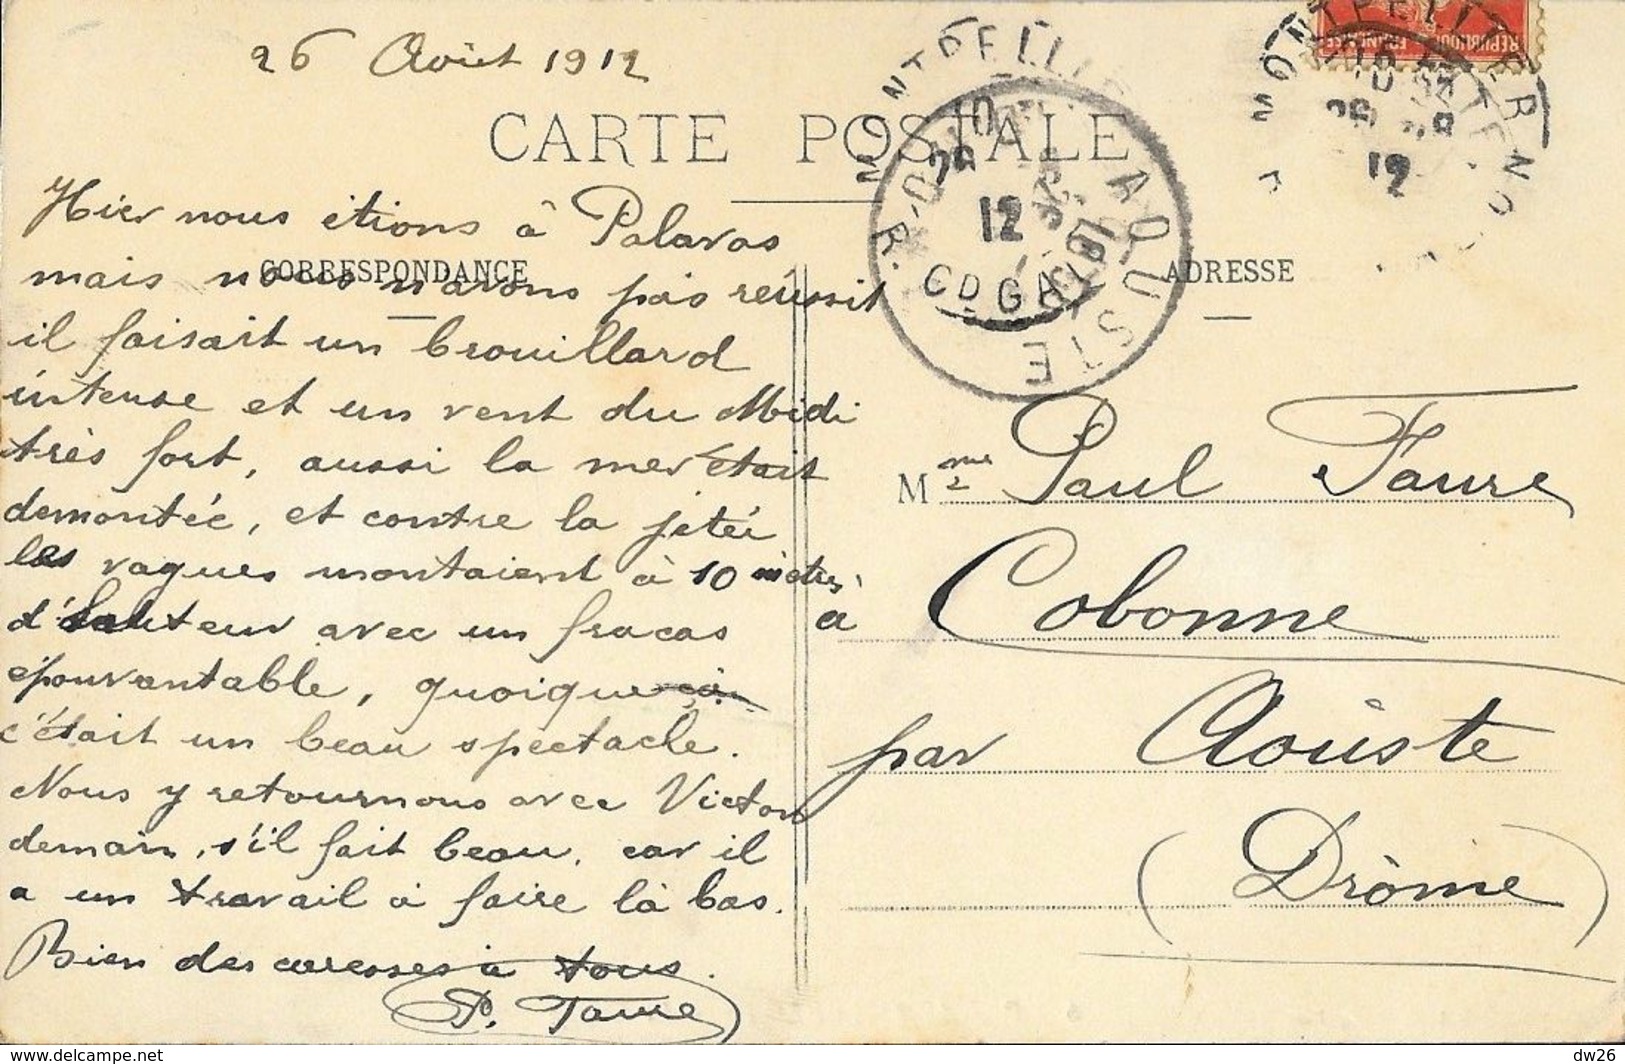 26 Août 1912
CARTE POSTALE
CORRESPONDANCE
ADRESSE
Hier nous étions à Palavas
mais nous n'avons pas réussit
il faisait un brouillard
intense et un vent du Midi
très fort, aussi la mer était
demontée, et contre la jetée
les vagues montaient à 10 mètres
d'hauteur avec un fracas
épouvantable, quoique
c'était un beau spectacle.
Nous y retournons avec Victor
demain, s'il fait beau, car il
a un travail à faire là bas.
Bien des caresses à tous.
P. Faure
Mme Paul Faure
à Cobonne
par Aouste
(Drôme)
MONTPELLIER
12
AOUSTE
MONTPELLIER
12
REPUBLIQUE FRANÇAISE
delcampe.net
dw26